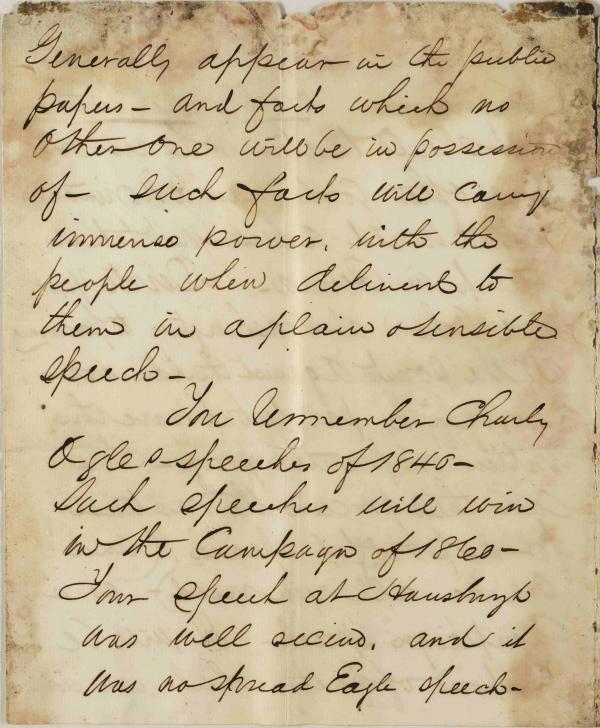 Generally appear in the public
papers – and facts which no
other one will be in possession
of – Such facts will carry
immense power, with the
people when deliverd to
them in a plain & sensible
speech –
You Remember Charly
Ogles speeches of 1840 –
Such speeches will win
in the Campaign of 1860 –
Your speech at
was well recivd, and it
was no spread Eagle speech –